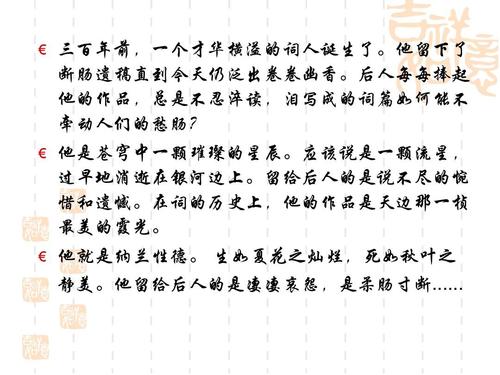 三百年前，一个才华横溢的词人诞生了。他留下了
断肠遗稿直到今天仍泛出卷卷幽香。后人每每捧起
他的作品，总是不忍淬读，泪写成的词篇如何能不
牵动人们的愁肠？
他是苍穹中一颗璀璨的星辰。应该说是一颗流星，
过早地消逝在银河边上。留给后人的是说不尽的惋
惜和遗憾。在词的历史上，他的作品是天边那一桢
最美的霞光。
他就是纳兰性德。 生如夏花之灿烂，死如秋叶之
静美。他留给后人的是凄凄哀怨，是柔肠寸断……